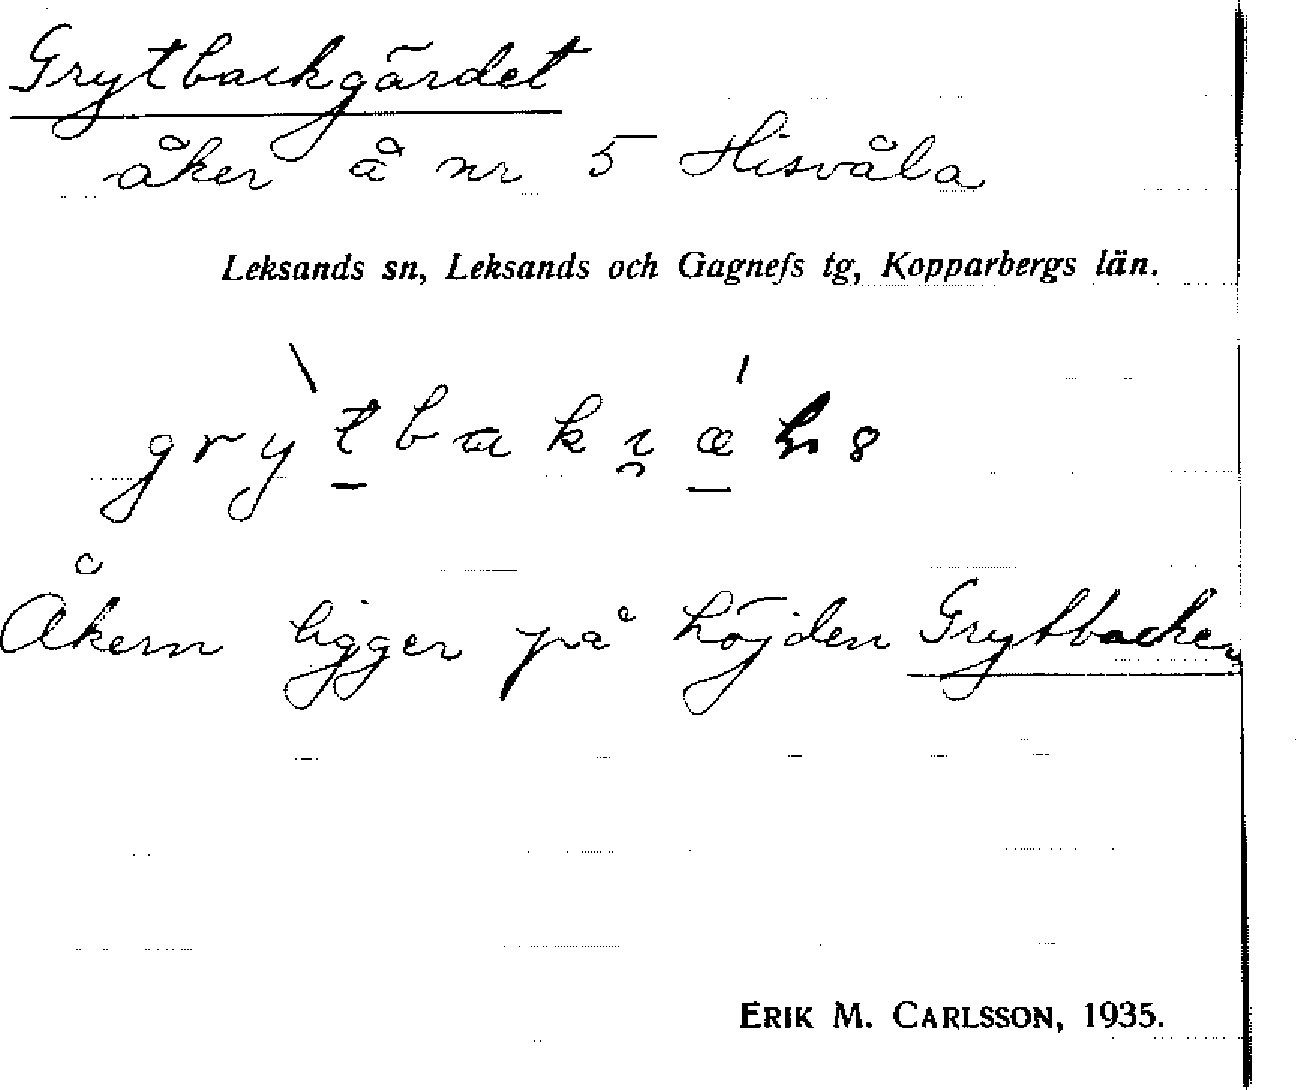 Grytbackgärdet
åker å nr 5 Hisvåla
Leksands sn, Leksands och Gagnefs tg, Kopparbergs län.
Åkern ligger på höjden Grytbacken
ERIK M. CARLSSON, 1935.